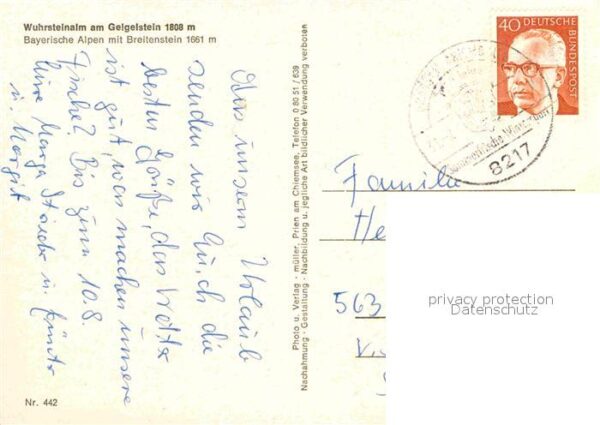 Wuhrsteinalm am Geigelstein 1808 m
Bayerische Alpen mit Breitenstein 1661 m
Aus unserem Urlaub
senden wir Euch die
besten Grüße, das Wetter
ist gut, was machen unsere
Fische? Bis zum 10.8.
Eure Marga
u. Margit
Nr. 442
Photo u. Verlag - müller, Prien am Chiemsee, Telefon 0 80 51 / 639
Nachahmung - Gestaltung - Nachbildung u. jegliche Art bildlicher Verwertung verboten
40 DEUTSCHE
BUNDESPOST
8217
Familie
He
563
privacy protection
Datenschutz